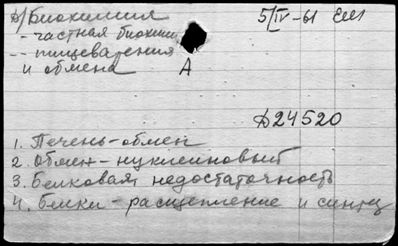 А/ Биохимия 5/IV-61
- частная биохим
-- пищеварения
и обмена А
Д24520
1. Печень-обмен
2. Обмен-нуклеиновый
3. Белковая недостаточность
4. Белки-расщепление и синтез